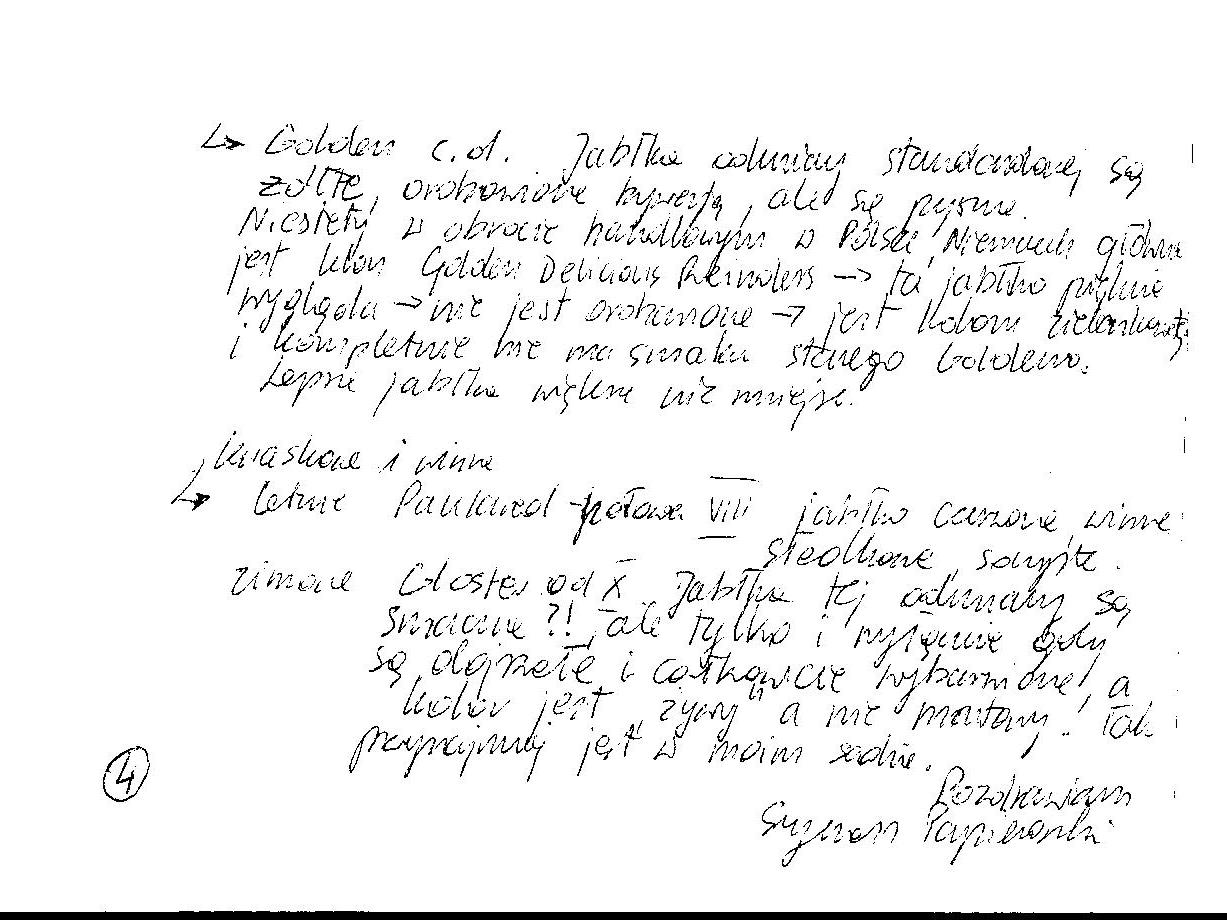 ↳ Golden c.d. Jabłka odmiany standardowej są
żółte, ordzawione, ale są pyszne.
Niestety w obrocie handlowym w Polsce, Niemczech główne
jest klon Golden Delicious Reinders → ta jabłko pięknie
wygląda → nie jest ordzawione → jest koloru
i kompletnie nie ma smaku starego Goldena.
Lepsze jabłka większe niż mniejsze.
kwaskowe i winne
↳ letnie Paulared - połowa VIII jabłko czerwone, winne
słodkawe, soczyste.
zimowe Gloster od X. Jabłka tej odmiany są
smaczne?!, ale tylko i wyłącznie gdy
są dojrzałe i całkowicie wybarwione, a
kolor jest „żywy" a nie martwy! Tak
przynajmniej jest w moim sadzie.
Pozdrawiam
④
Szymon Papierowski